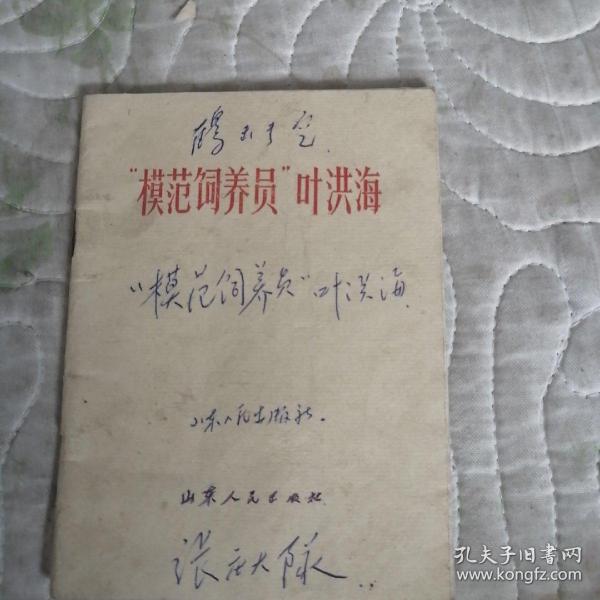 “模范饲养员”叶洪海
“模范饲养员”叶洪海
山东人民出版社.
山东人民出版社
张庄大队
孔夫子旧书网
www.kongfz.com